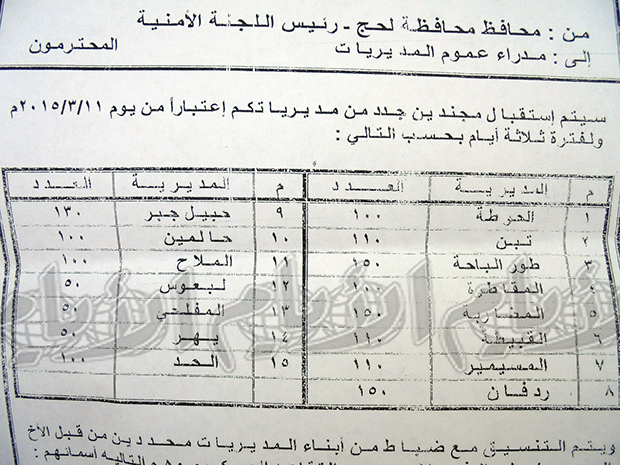 من : محافظ محافظة لحج - رئيس اللجنة الأمنية
إلى : مدراء عموم المديريات المحترمون
سيتم إستقبال مجندين جدد من مديرياتكم إعتباراً من يوم ٢٠١٥/٣/١١م
ولفترة ثلاثة أيام بحسب التالي :
م المديرية العدد م المديرية العدد
١ الحوطة ١٠٠ ٩ حبيل جبر ١٣٠
٢ تبن ١١٠ ١٠ حالمين ١٠٠
٣ طور الباحة ١٥٠ ١١ الملاح ١٠٠
٤ المقاطرة ١٠٠ ١٢ لبعوس ٥٠
٥ المضاربه ١٥٠ ١٣ المفلحي ٥٠
٦ القبيطة ١١٠ ١٤ يهر ٥٠
٧ المسيمير ١١٠ ١٥ الحد ١٠٠
٨ ردفان ١٥٠
ويتم التنسيق مع ضباط من أبناء المديريات محددين من قبل الأخ
والتاليه أسمائهم :
الأيام الأيام